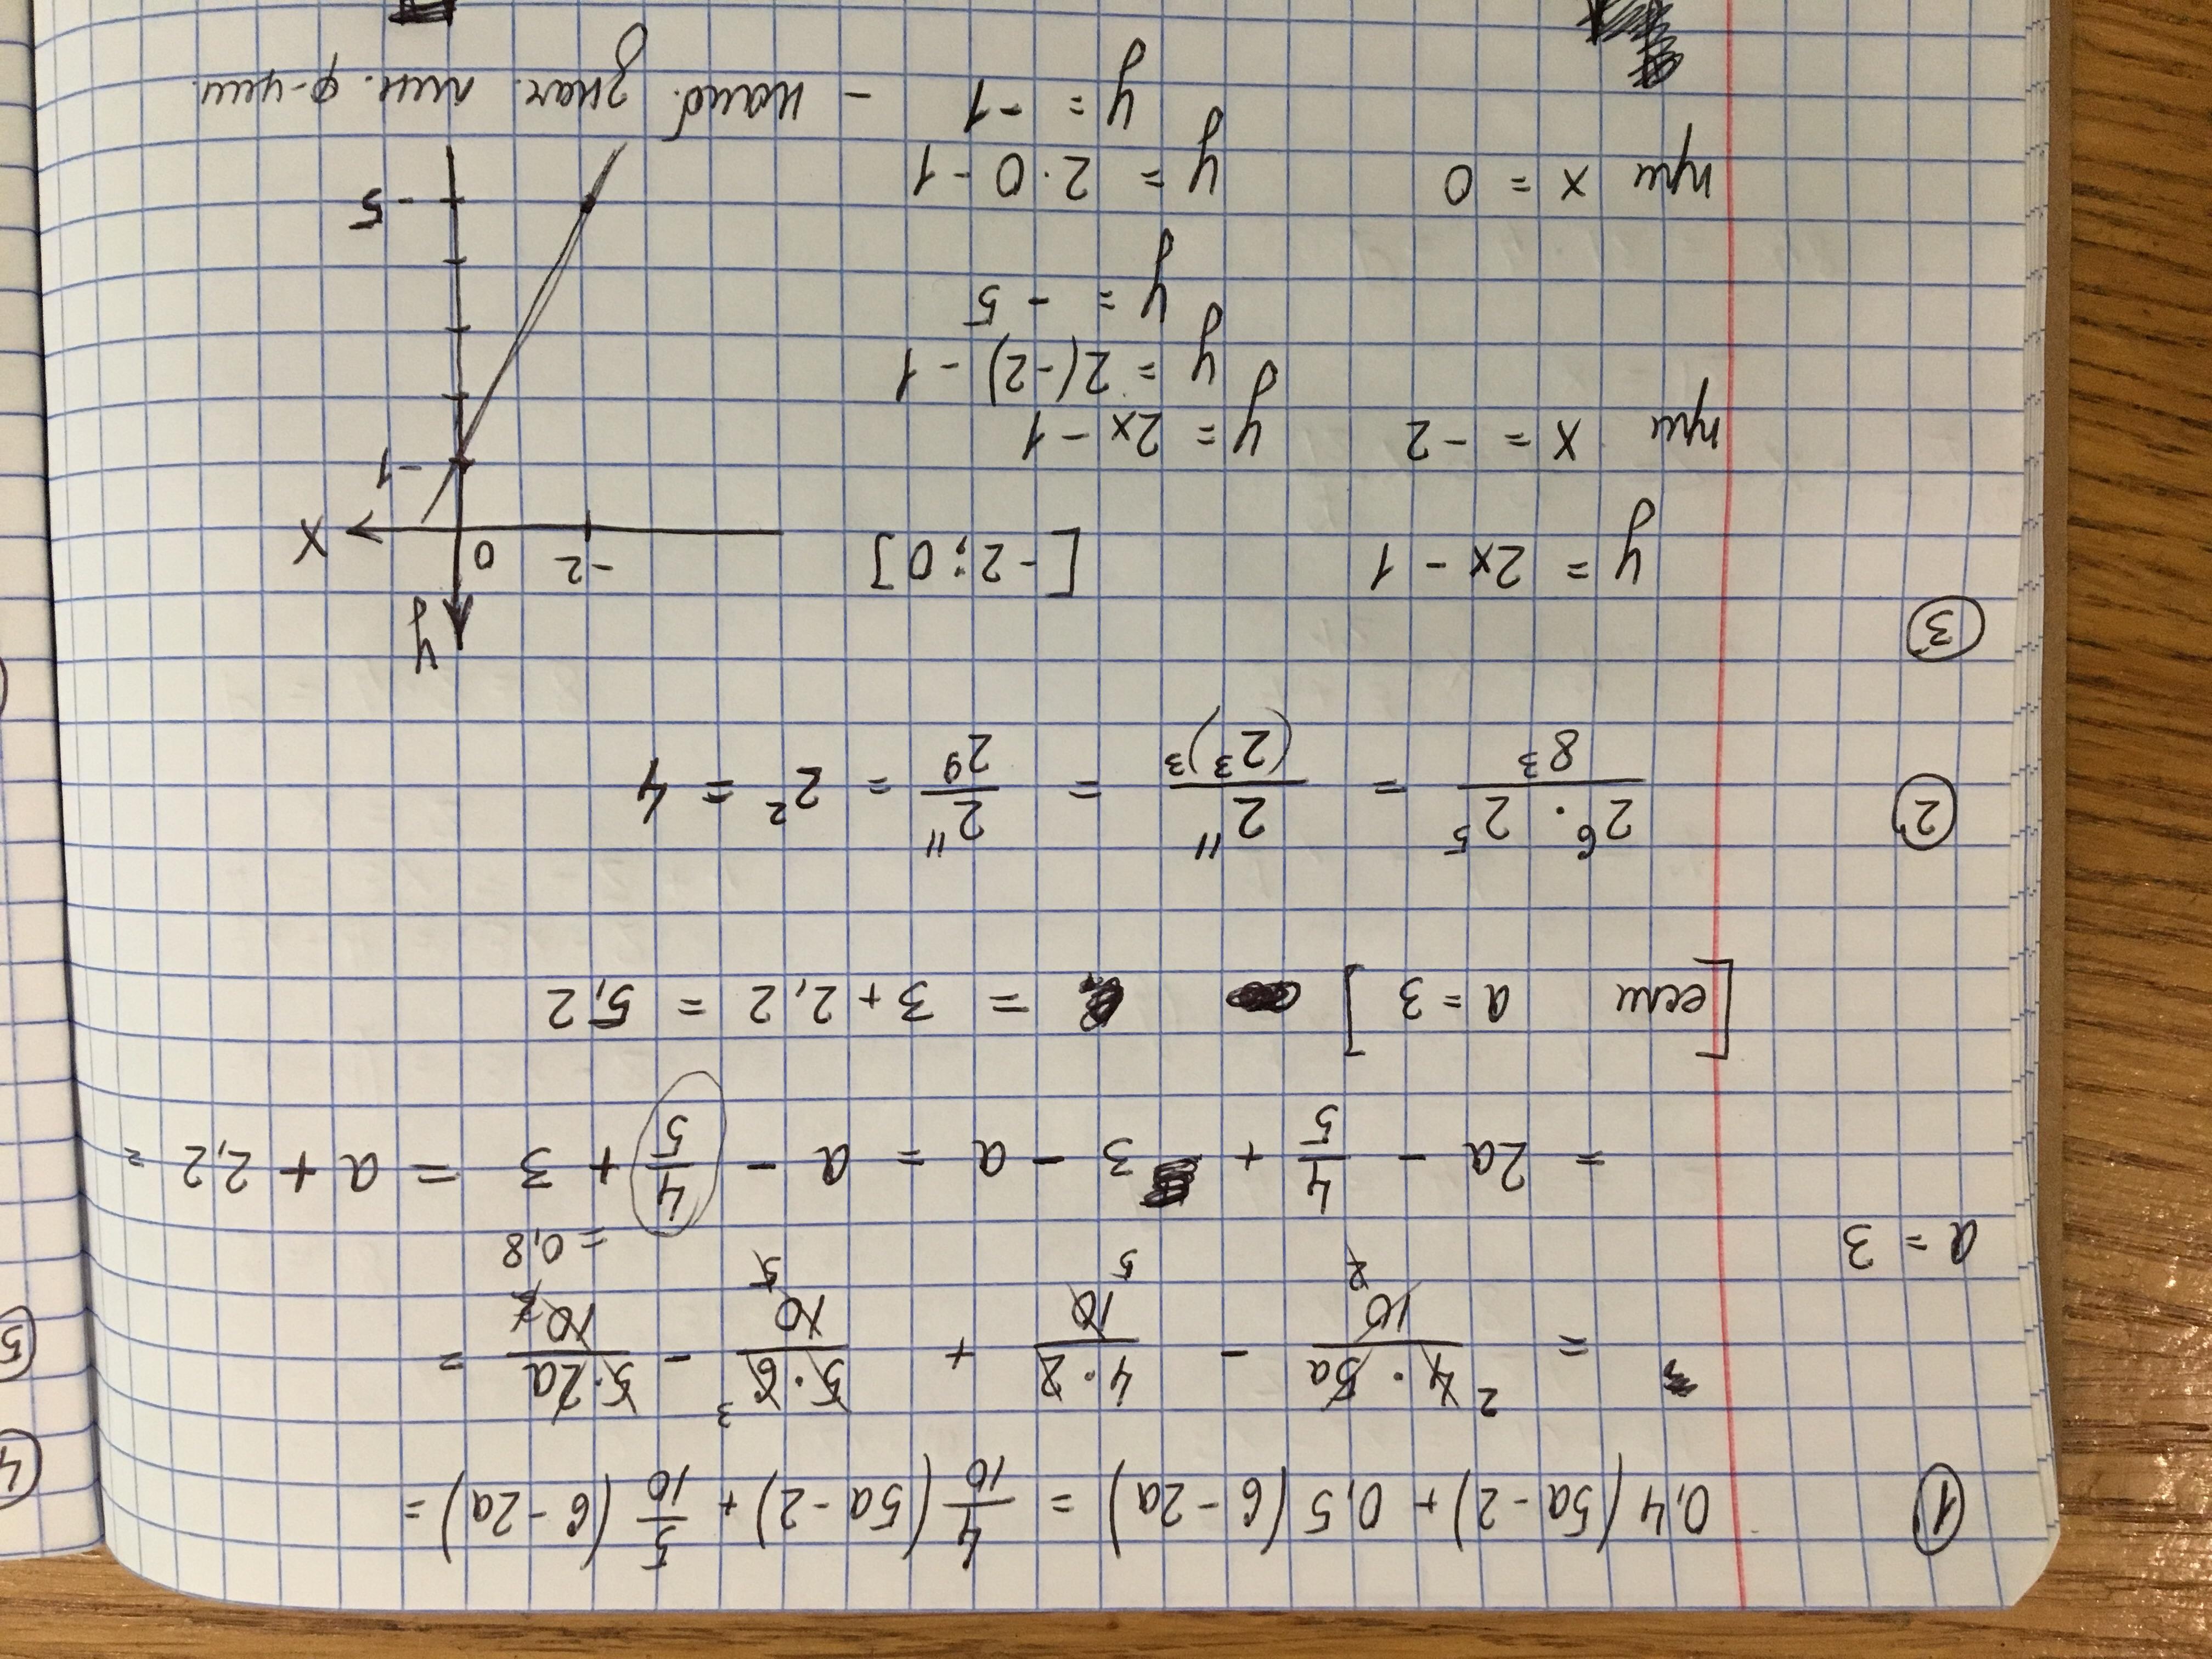 ① 0,4(5a-2)+0,5(6-2a) = 4/10(5a-2)+5/10(6-2a) =
= 4·5a/10 - 4·2/10 + 5·6/10 - 5·2a/10 =
2 3
2 5 5
a = 3
= 0,8
= 2a - 4/5 + 3 - a = a - 4/5 + 3 = a + 2,2 =
[если a = 3] = 3 + 2,2 = 5,2
② 2⁶·2⁵/8³ = 2¹¹/(2³)³ = 2¹¹/2⁹ = 2² = 4
③
y = 2x - 1 [-2; 0]
при x = -2 y = 2x - 1
y = 2(-2) - 1
y = -5
при x = 0 y = 2·0 - 1
y = -1 - наиб. знач. лин. ф-ции.
y
-2 0 x
-1
-5
④
⑤